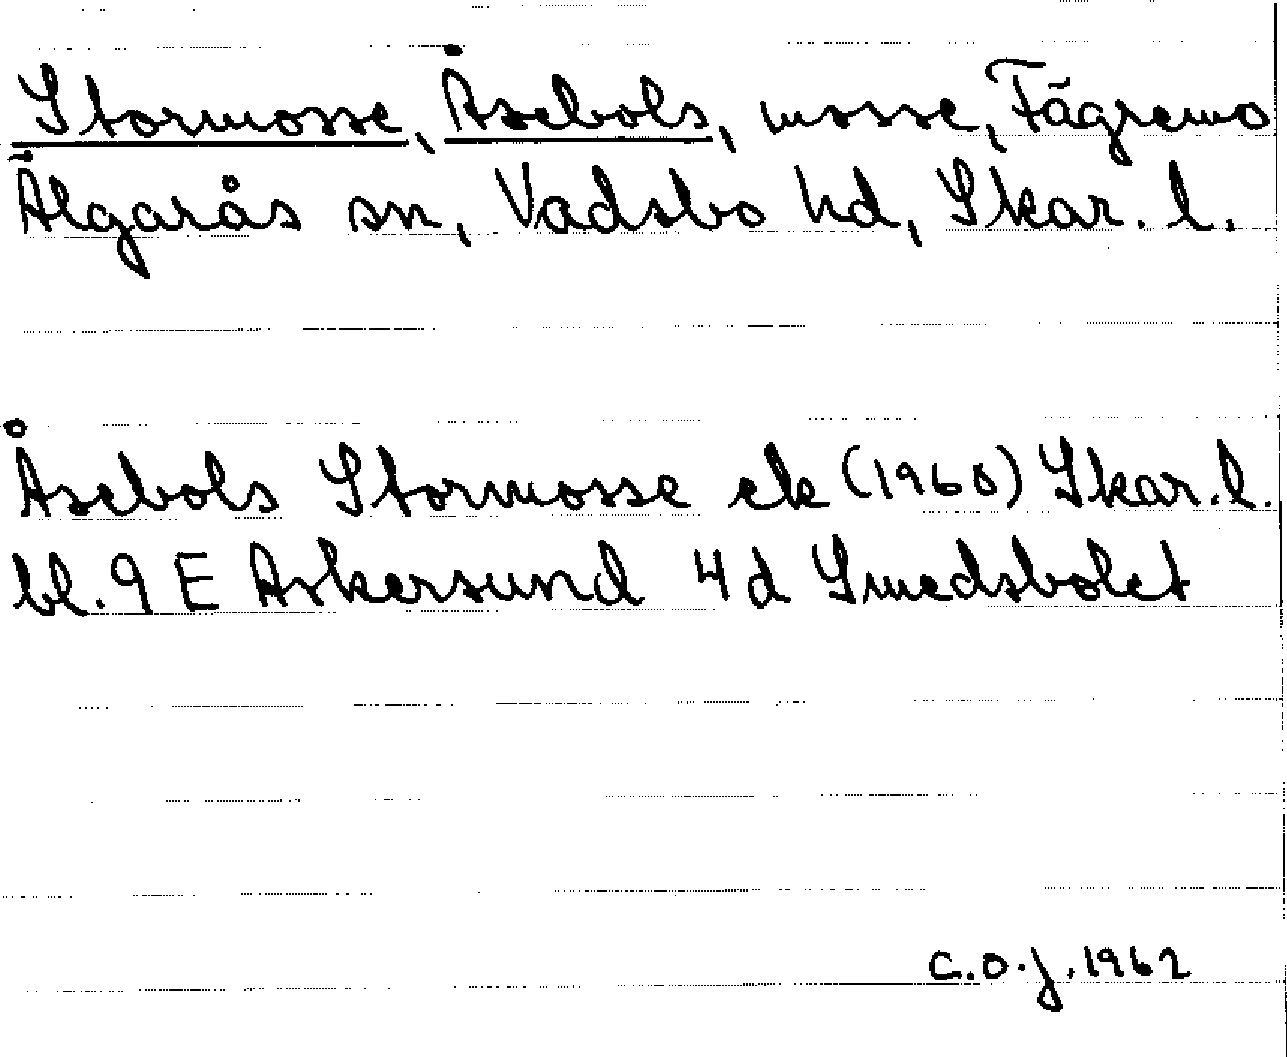 Stormosse, Åsebols, mosse, Fägremo
Älgarås sn, Vadsbo hd, Skar. l.
Åsebols Stormosse ek (1960) Skar. l.
bl. 9 E Askersund 4 d Smedsbolet
C.O.J. 1962